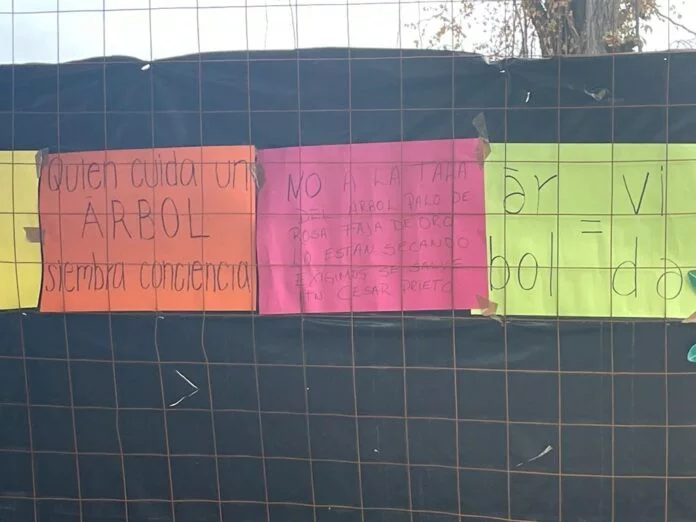 Quien cuida un
ÁRBOL
siembra conciencia
NO A LA TALA
DEL ARBOL PALO DE
ROSA FAJA DE ORO
LO ESTAN SECANDO
EXIGIMOS SE SALVE
ATN CESAR PRIETO
ár vi
=
bol da